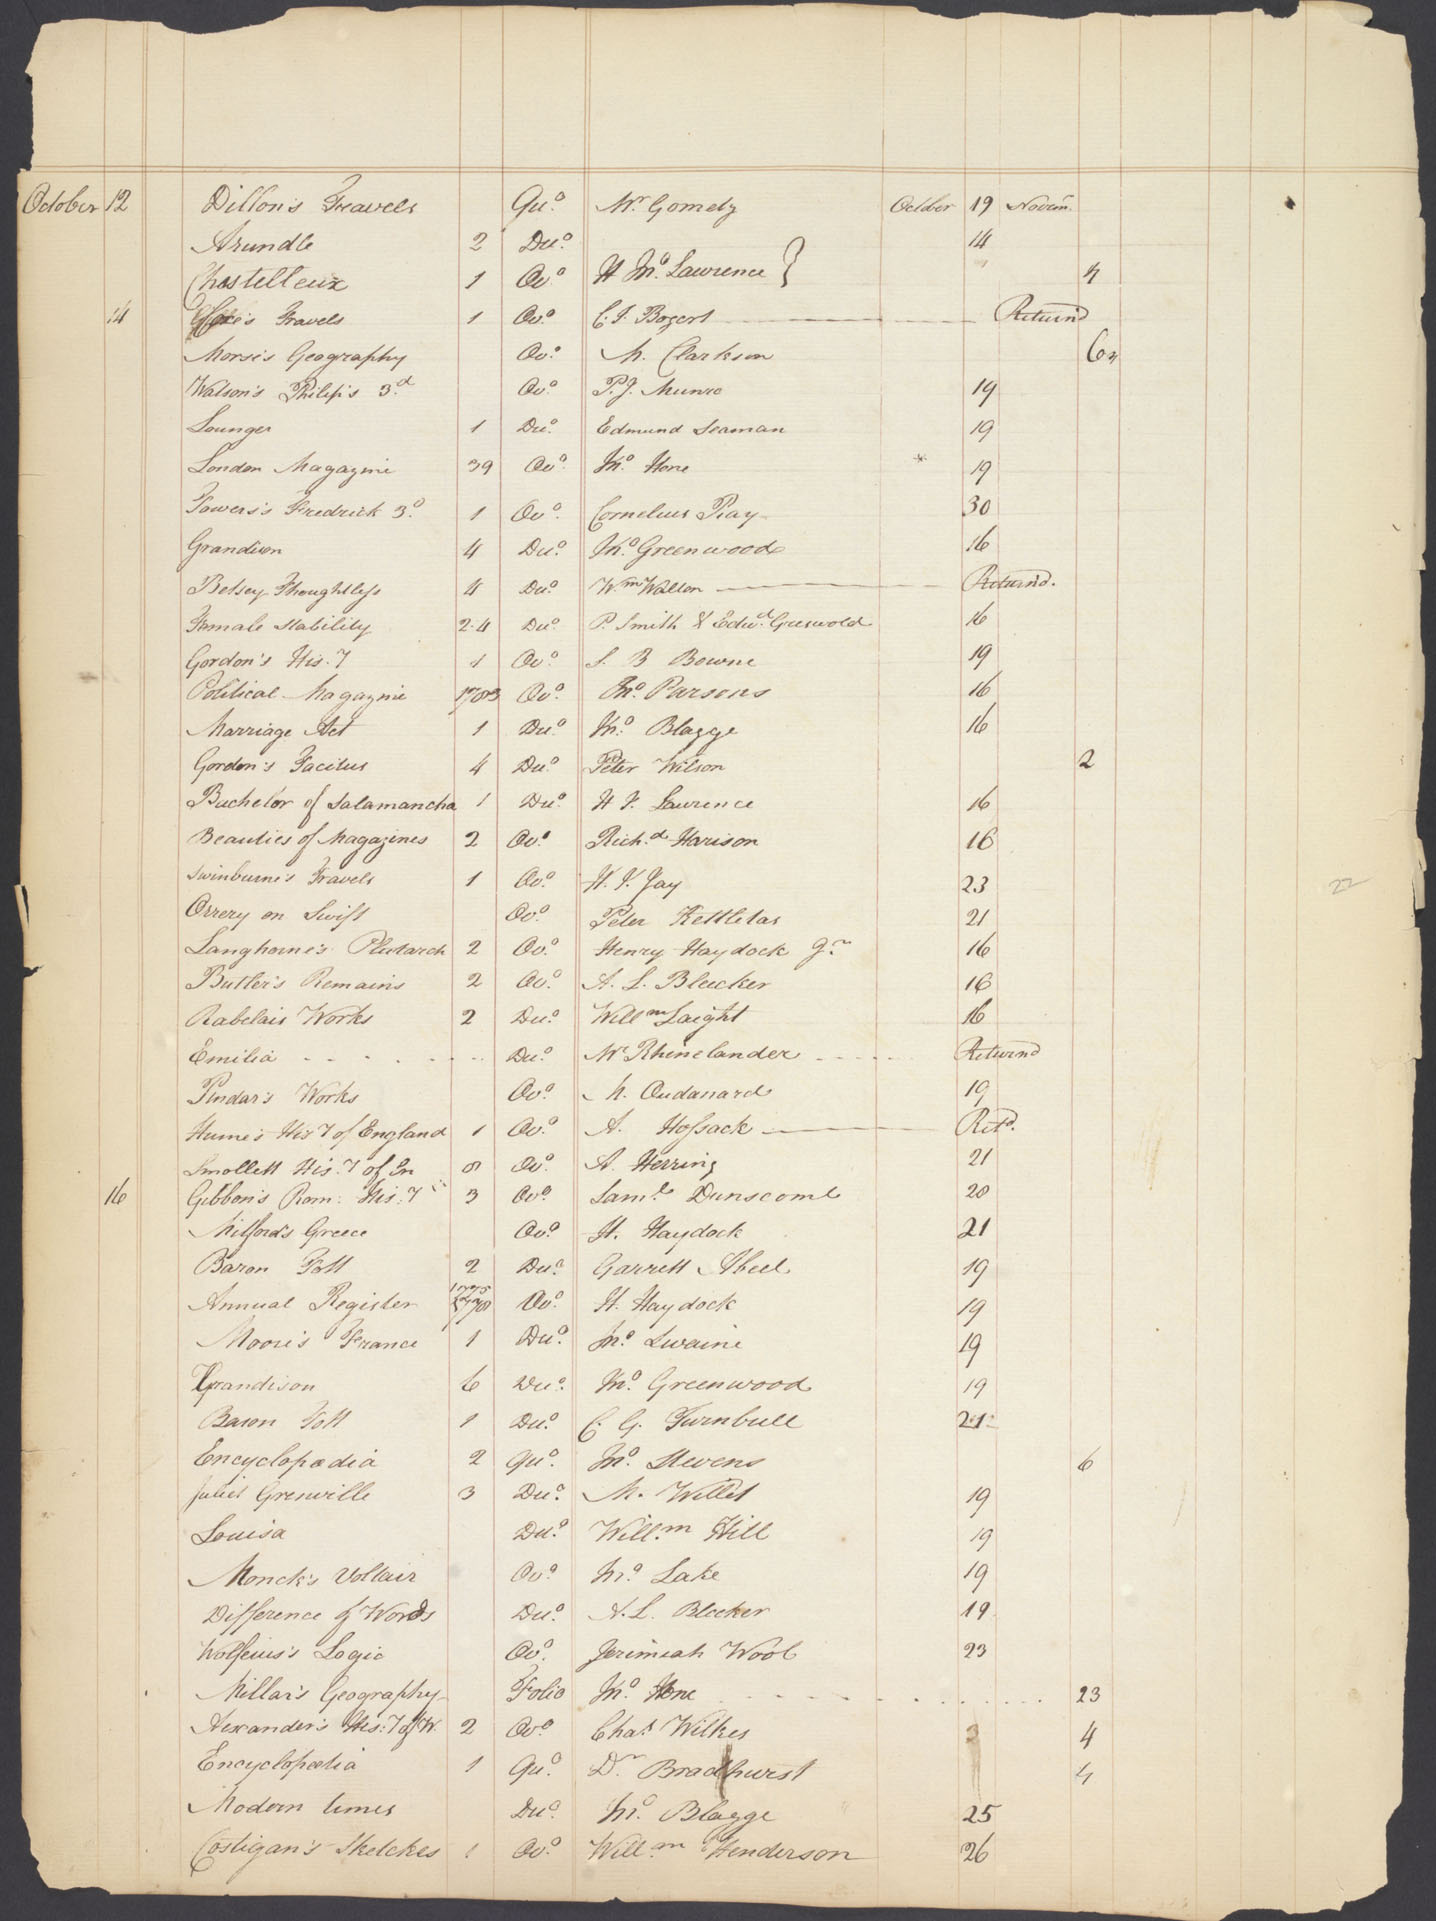 October 12 Dillon's Travels Qu.o Mr Gomez October 19 Novem.
Arundle 2 Du.o 14
Chastelleux 1 Ov.o Jno. Lawrence } 4
14 Travels 1 Ov.o C. J. Bogert Return'd
Morse's Geography Ov.o M. Clarkson 6
Watson's Philip's 3.d Ov.o P. J. Munro 19
Lounger 1 Du.o Edmund Seaman 19
London Magazine 39 Ov.o Jno. Hone 19
Towers's Fredrick 3.d 1 Ov.o Cornelius Ray 30
Grandison 4 Du.o Jno. Greenwood 16
Betsey Thoughtless 4 Du.o Wm Walton Return'd.
Female Stability 2.4 Du.o P. Smith & Edw.d Griswold 16
Gordon's His.y 1 Ov.o S. B Bowne 19
Political Magazine 1783 Ov.o Jno. Parsons 16
Marriage Act 1 Du.o Jno. Blagge 16
Gordon's Tacitus 4 Du.o Peter Wilson 2
Bachelor of Salamancha 1 Du.o Lawrence 16
Beauties of Magazines 2 Ov.o Rich.d Harison 16
Swinburne's Travels 1 Ov.o Jay 23
Orrery on Swift Ov.o Peter Kettletas 21
22
Langhorne's Plutarch 2 Ov.o Henry Haydock Jr 16
Butler's Remains 2 Ov.o A. L. Bleecker 16
Rabelais Works 2 Du.o Will m Laight 16
Emilia - - - - - - Du.o Mr Rhinelander - - - - - Returnd
Pindar's Works Ov.o Oudanard 19
Hume's His.y of England 1 Ov.o A. Hossack Ret.d
Smollett His.y of En 8 Ov.o A. Herring 21
16 Gibbon's Rom. His.y 3 Ov.o Sam.l Dunscomb 20
Mitford's Greece Ov.o H. Haydock 21
Baron Tott 2 Du.o Garrett Abeel 19
Annual Register 1775 Ov.o H. Haydock 19
Moore's France 1 Du.o Jno. Swaine 19
Grandison 6 Du.o Jno. Greenwood 19
Baron Tott 1 Du.o C. G. Turnbull 21
Encyclopædia 2 Qu.o Jno. Stevens 6
Juliet Grenville 3 Du.o M. Willet 19
Louisa Du.o Will.m Hill 19
Monck's Voltair Ov.o Jno. Lake 19
Difference of Words Du.o A. L. Bleeker 19
Wolfeius's Logic Ov.o Jerimiah Wool 23
Millar's Geography Folio Jno. Hone 23
Alexander's His.y of W. 2 Ov.o Cha.s Wilkes 4
Encyclopædia 1 Qu.o Dr Bradhurst 4
Modern times Du.o Jno. Blagge 25
Costigan's Sketches 1 Ov.o Will.m Henderson 26